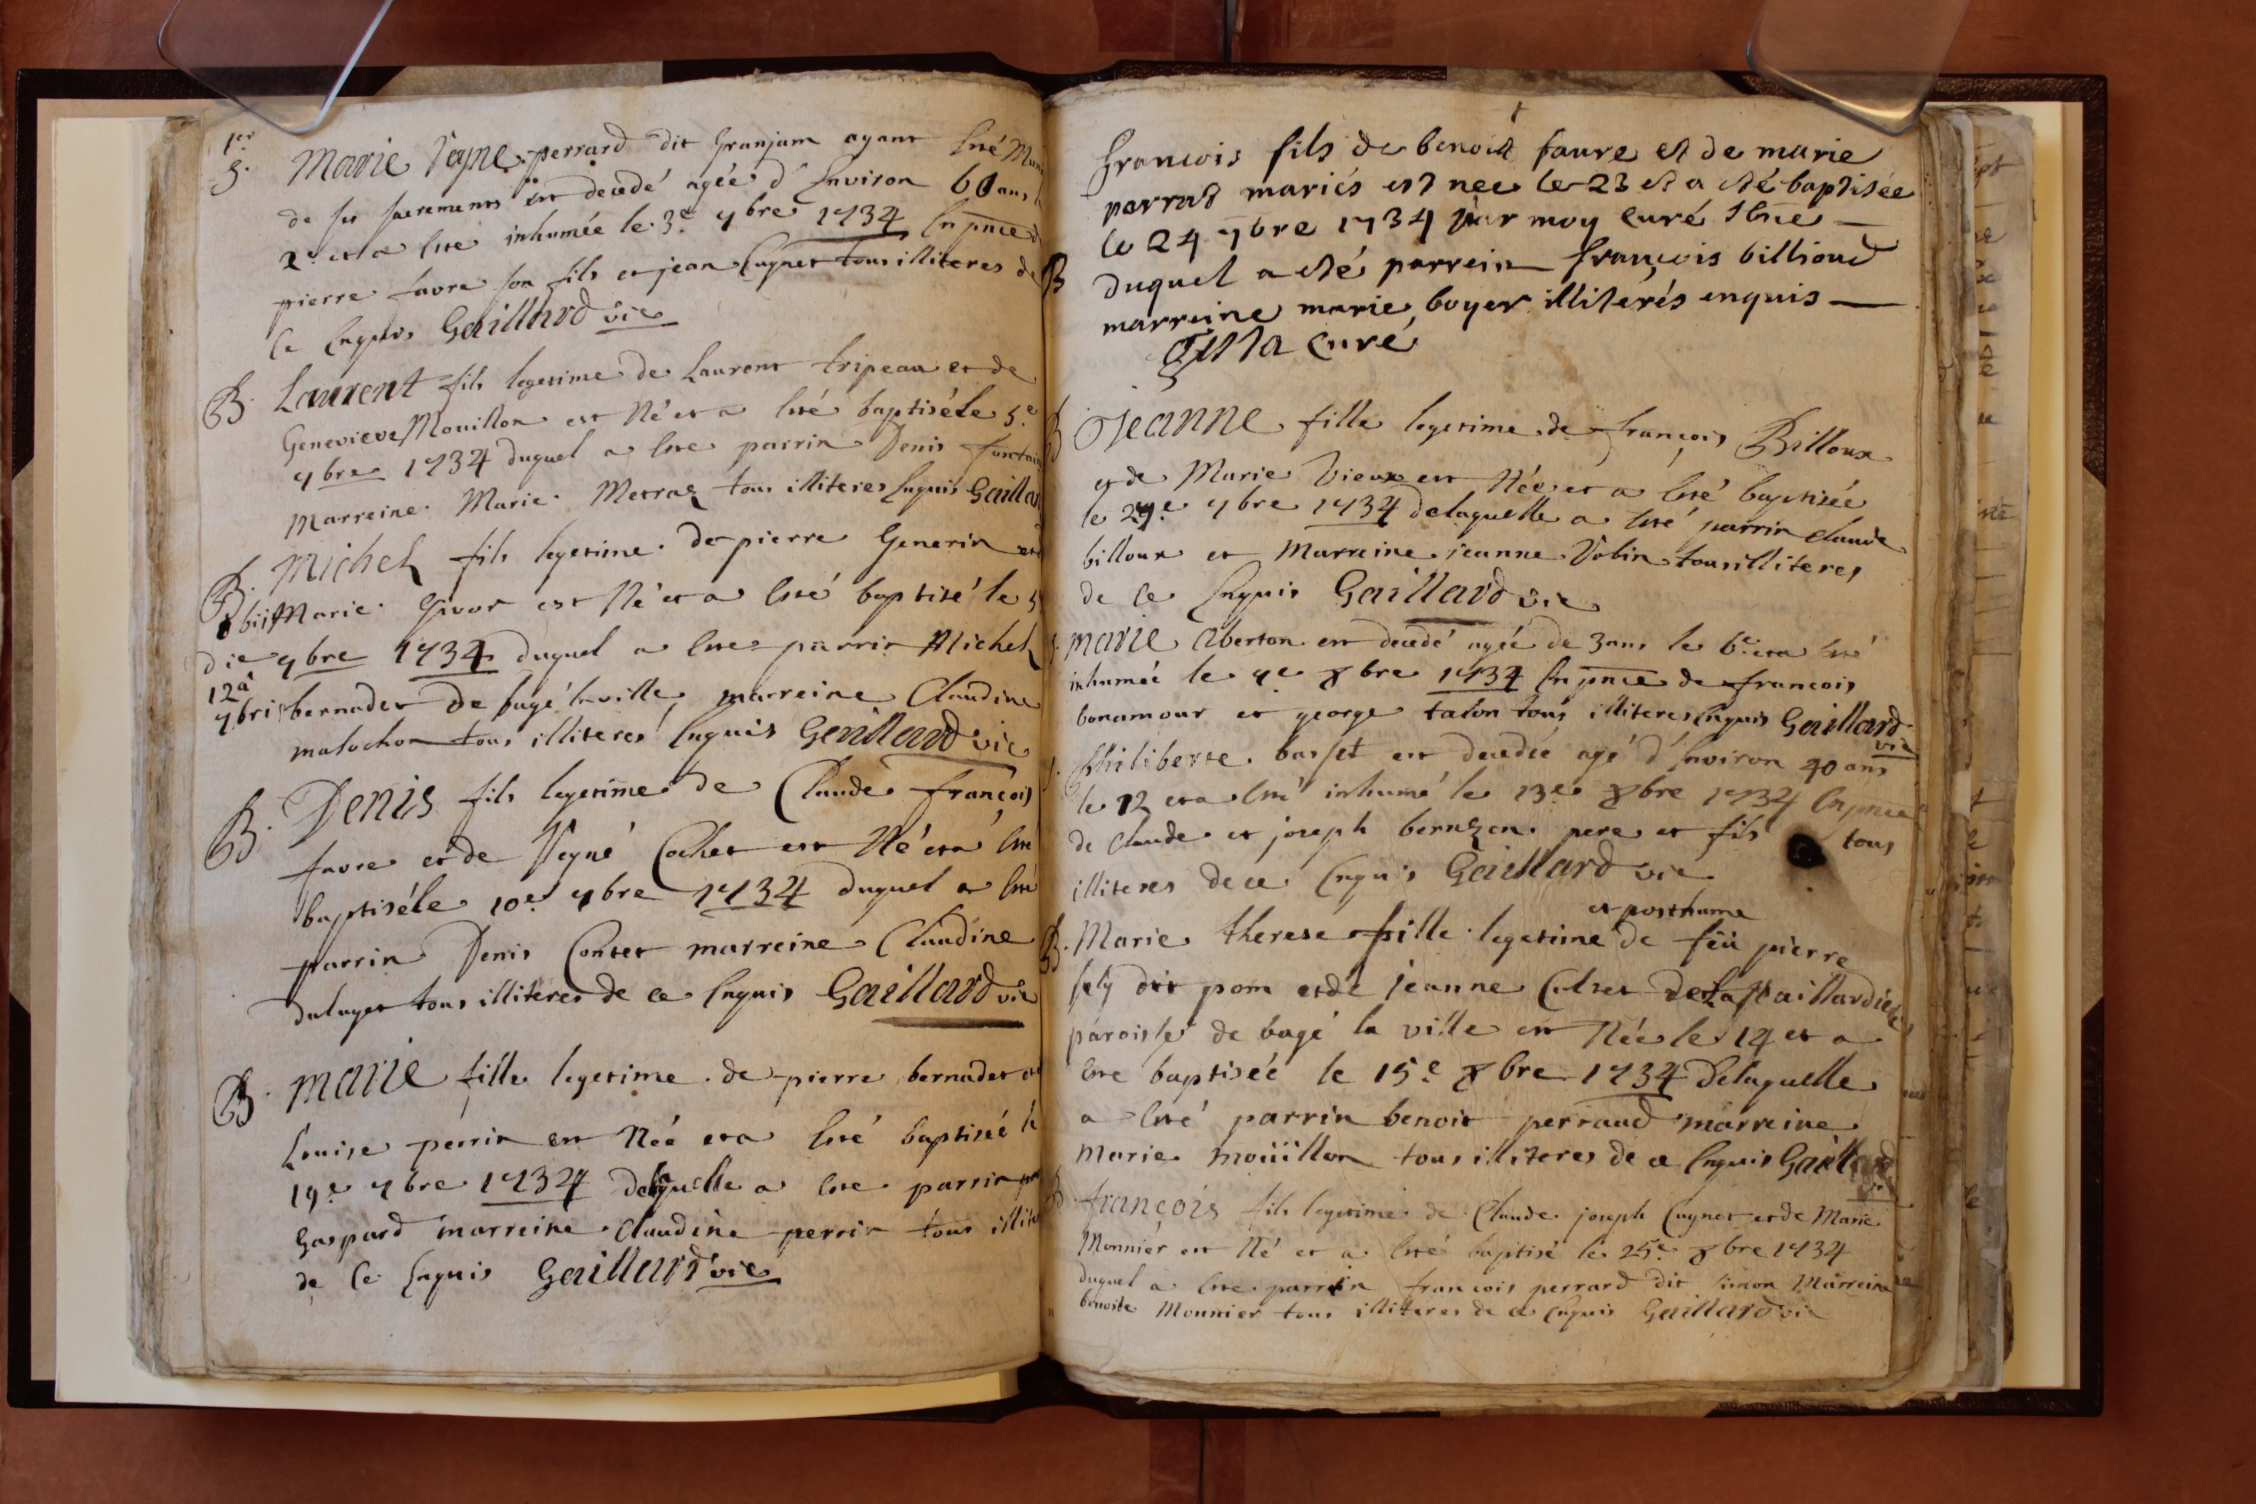 1er
S. Marie Reyne perrard dit Granjam ayant esté Mun
de ses sacrements est decedé agée d'Environ 60 ans l
2e et a esté inhumée le 3e 7bre 1734 En pnce d
pierre favre son fils et jean Cugnet tous illiteres de
ce Enquis Gaillard vic
B. Laurent fils legetime de Laurent tripeau et de
Genevieve Mouillon est Né et a esté baptisé le 5e
7bre 1734 duquel a este parrin Denis fontai
marreine Marie Metraz tous illiteres Enquis Gaillar
B. Michel fils legetime de pierre Generin et d
obiit Marie Givor est Né et a esté baptisé le 5
die 7bre 1734 duquel a este parrin Michel
12a
7bris bernadet de bagé la ville marreine Claudine
malochon tous illiteres Enquis Gaillard vic
B. Denis fils legetime de Claude françois
favre et de Reyné Cochet est Né et a esté
baptisé le 10e 7bre 1734 duquel a esté
parrin Denis Contet marreine Claudine
dulayet tous illiteres de ce Enquis Gaillard vic
B. Marie fille legetime de pierre bernadet et
Louise perrin est Née et a esté baptisée le
19e 7bre 1734 delaquelle a este parrin
Gaspard marreine Claudine perrin tous illite
de ce Enquis Gaillard vic
françois fils de benoit faure et de marie
perrad mariés est nee le 23 et a esté baptisée
le 24 7bre 1734 par moy curé sbne
B duquel a esté parrein françois billioud
marreine marie boyer illiterés enquis
curé
B Jeanne fille legetime de françois Billoux
et de Marie Vieux est Née et a esté baptisée
le 29e 7bre 1734 delaquelle a esté parrin Claude
billoux et Marreine jeanne Vobin tous illiteres
de ce Enquis Gaillard vic
S. Marie Aberton est decedé agée de 3 ans le 6e et a esté
inhumée le 7e 8bre 1734 En pnce de francois
bonamour et george talon tous illiteres Enquis Gaillard
vic
S. Philiberte basset est decedée agé d'Environ 40 ans
le 12 et a esté inhumé le 13e 8bre 1734 En pnce
de Claude et joseph bernezon pere et fils tous
illiteres de ce Enquis Gaillard vic
et posthume
B. Marie therese fille legetime de feü pierre
sely dit pom et de jeanne Culset de La paillardiere
paroisse de bagé la ville est Née le 14 et a
este baptiseé le 15e 8bre 1734 delaquelle
a esté parrin benoit perraud marreine
Marie moüillon tous illiteres de ce Enquis Gaillard
vic
B françois fils legetime de Claude joseph Cugnet et de Marie
Monnier est Né et a esté baptisé le 25e 8bre 1734
duquel a este parrein francois perrard dit simon Marreine
benoite Monnier tous illiteres de ce Enquis Gaillard vic